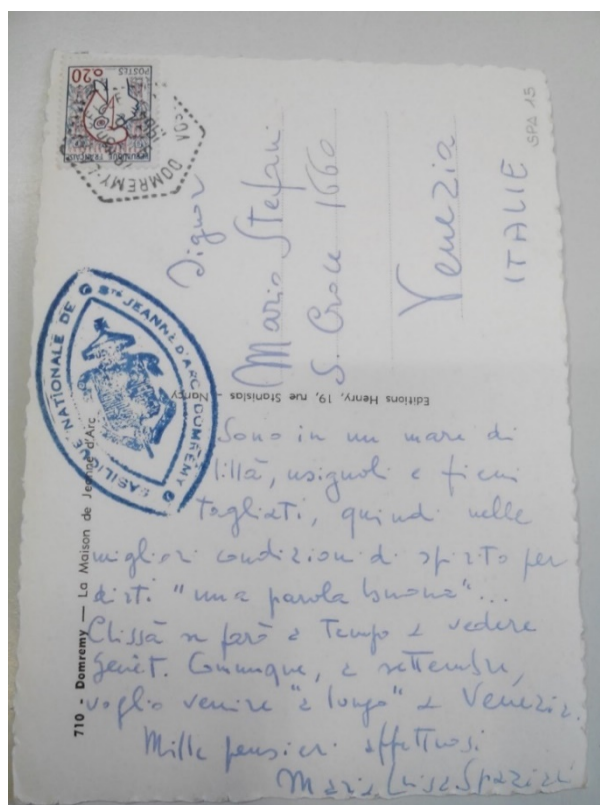 0,20
POSTES
DOMREMY-L
SPA 15
Signor
Mario Stefani
S. Croce 1660
Venezia
ITALIE
BASILIQUE NATIONALE DE
Ste JEANNE D'ARC DOMREMY
Editions Henry, 19, rue Stanislas - Nancy
710 - Domremy — La Maison de Jeanne d'Arc
Sono in un mare di
lillà, usignoli e fieni
tagliati, quindi nelle
migliori condizioni di spirito per
dirti "una parola buona"...
Chissà se farò a tempo a vedere
Genêt. Comunque, a settembre,
voglio venire "a lungo" a Venezia.
Mille pensieri affettuosi
Maria Luisa Spaziani